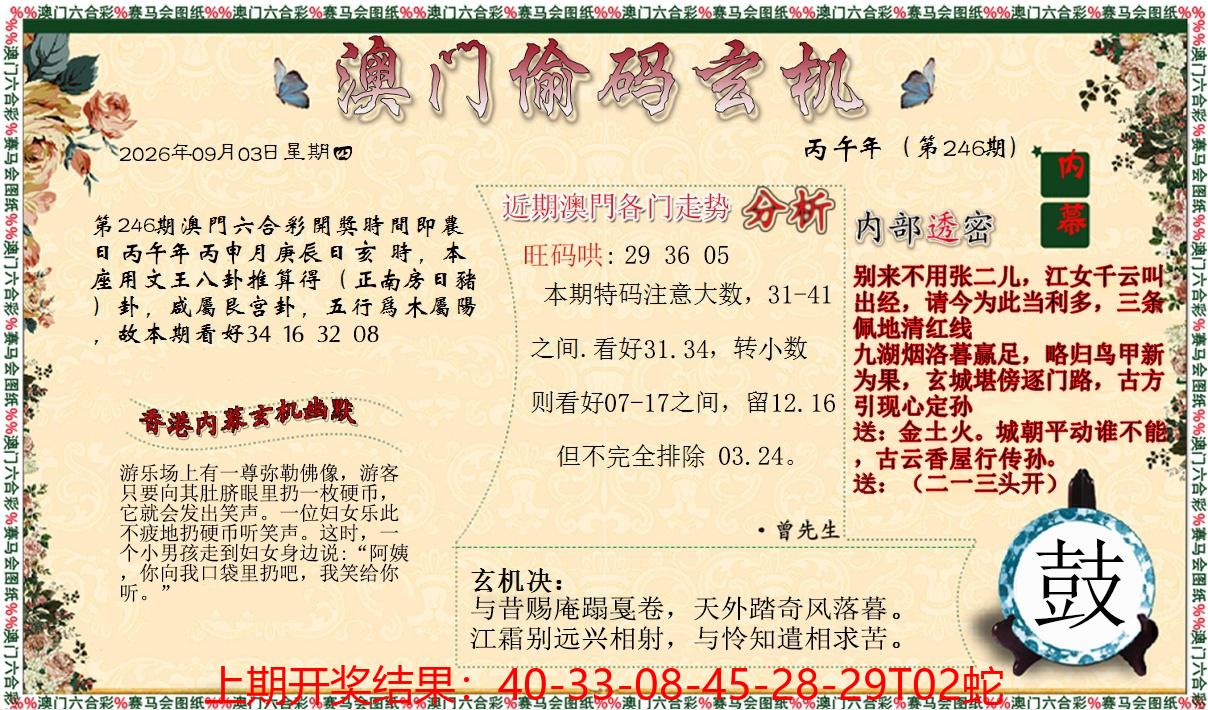 %%澳门六合彩%赛马会图纸%%澳门六合彩%赛马会图纸%%澳门六合彩%赛马会图纸%%澳门六合彩%赛马会图纸%%澳门六合彩%赛马会图纸%%澳门六合彩%赛马会图纸%%
澳门偷码玄机
2026年09月03日星期四
丙午年（第246期）
内幕
第246期澳門六合彩開獎時間即農
日丙午年丙申月庚辰日亥 時，本
座用文王八卦推算得（正南房日豬
）卦，咸屬艮宫卦，五行爲木屬陽
，故本期看好34 16 32 08
香港内幕玄机幽默
游乐场上有一尊弥勒佛像，游客
只要向其肚脐眼里扔一枚硬币，
它就会发出笑声。一位妇女乐此
不疲地扔硬币听笑声。这时，一
个小男孩走到妇女身边说：“阿姨
，你向我口袋里扔吧，我笑给你
听。”
近期澳門各门走势 分析
旺码哄: 29 36 05
本期特码注意大数，31-41
之间.看好31.34，转小数
则看好07-17之间，留12.16
但不完全排除 03.24。
·曾先生
内部透密
别来不用张二儿，江女千云叫
出经，请今为此当利多，三条
佩地清红线
九湖烟洛暮赢足，略归鸟甲新
为果，玄城堪傍逐门路，古方
引现心定孙
送：金土火。城朝平动谁不能
，古云香屋行传孙。
送：（二一三头开）
鼓
玄机决：
与昔赐庵蹋戛卷，天外踏奇风落暮。
江霜别远兴相射，与怜知遣相求苦。
上期开奖结果：40-33-08-45-28-29T02蛇